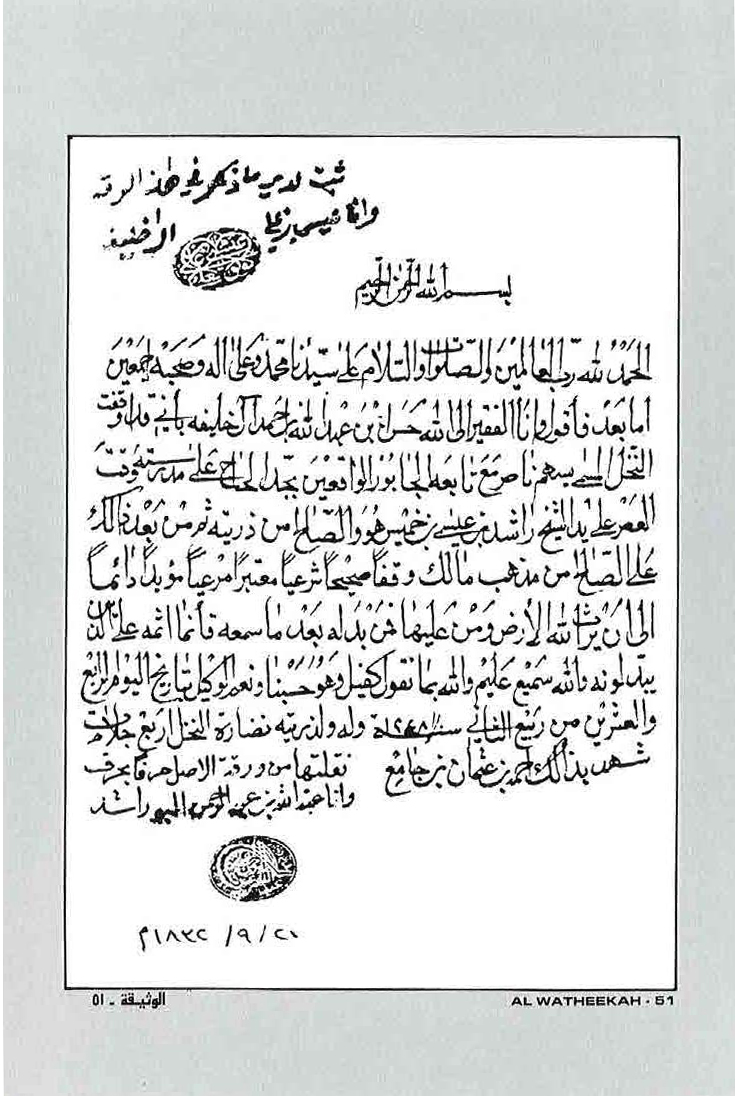 ثبت لدي ما ذكر في هذا الورقة
وانا عيسى بن علي
ال خليفه
بسم الله الرحمن الرحيم
الحمد لله رب العالمين والصلوات والسلام على سيدنا محمد وعلى اله وصحبه اجمعين
اما بعد فأقول وانا الفقير الى الله حسن بن عبد الله بن احمد آل خليفه بأني قد اوقفت
النخل المسمى بسهم ناصر مع تابعه الجابور الواقعين بجد الحاج على مدرسته وقت
العمر على يد الشيخ راشد بن عيسى بن خميس هو والصالح من ذريته ثم من بعد ذالك
على الصالح من مذهب مالك وقفاً صحيحاً شرعياً معتبراً مرعياً مؤبداً دائماً
الى ان يرث الله الأرض ومن عليها فمن بدله بعد ما سمعه فأنما اثمه على الذين
يبدلونه والله سميع عليم والله بما نقول كفيل وهو حسبنا ونعم الوكيل بتاريخ اليوم الرابع
والعشرين من ربيع الثاني سنة ١٢٤٨ وله ولذريته نضارة النخل اربع جلات
شهد بذالك احمد بن عثمان بن جامع
نقلتها من ورقة الاصل حرفا بحرف
وانا عبد الله بن عبد الرحمن راشد
٢٠/٩/١٨٣٢م
الوثيقة - ٥١
AL WATHEEKAH - 51